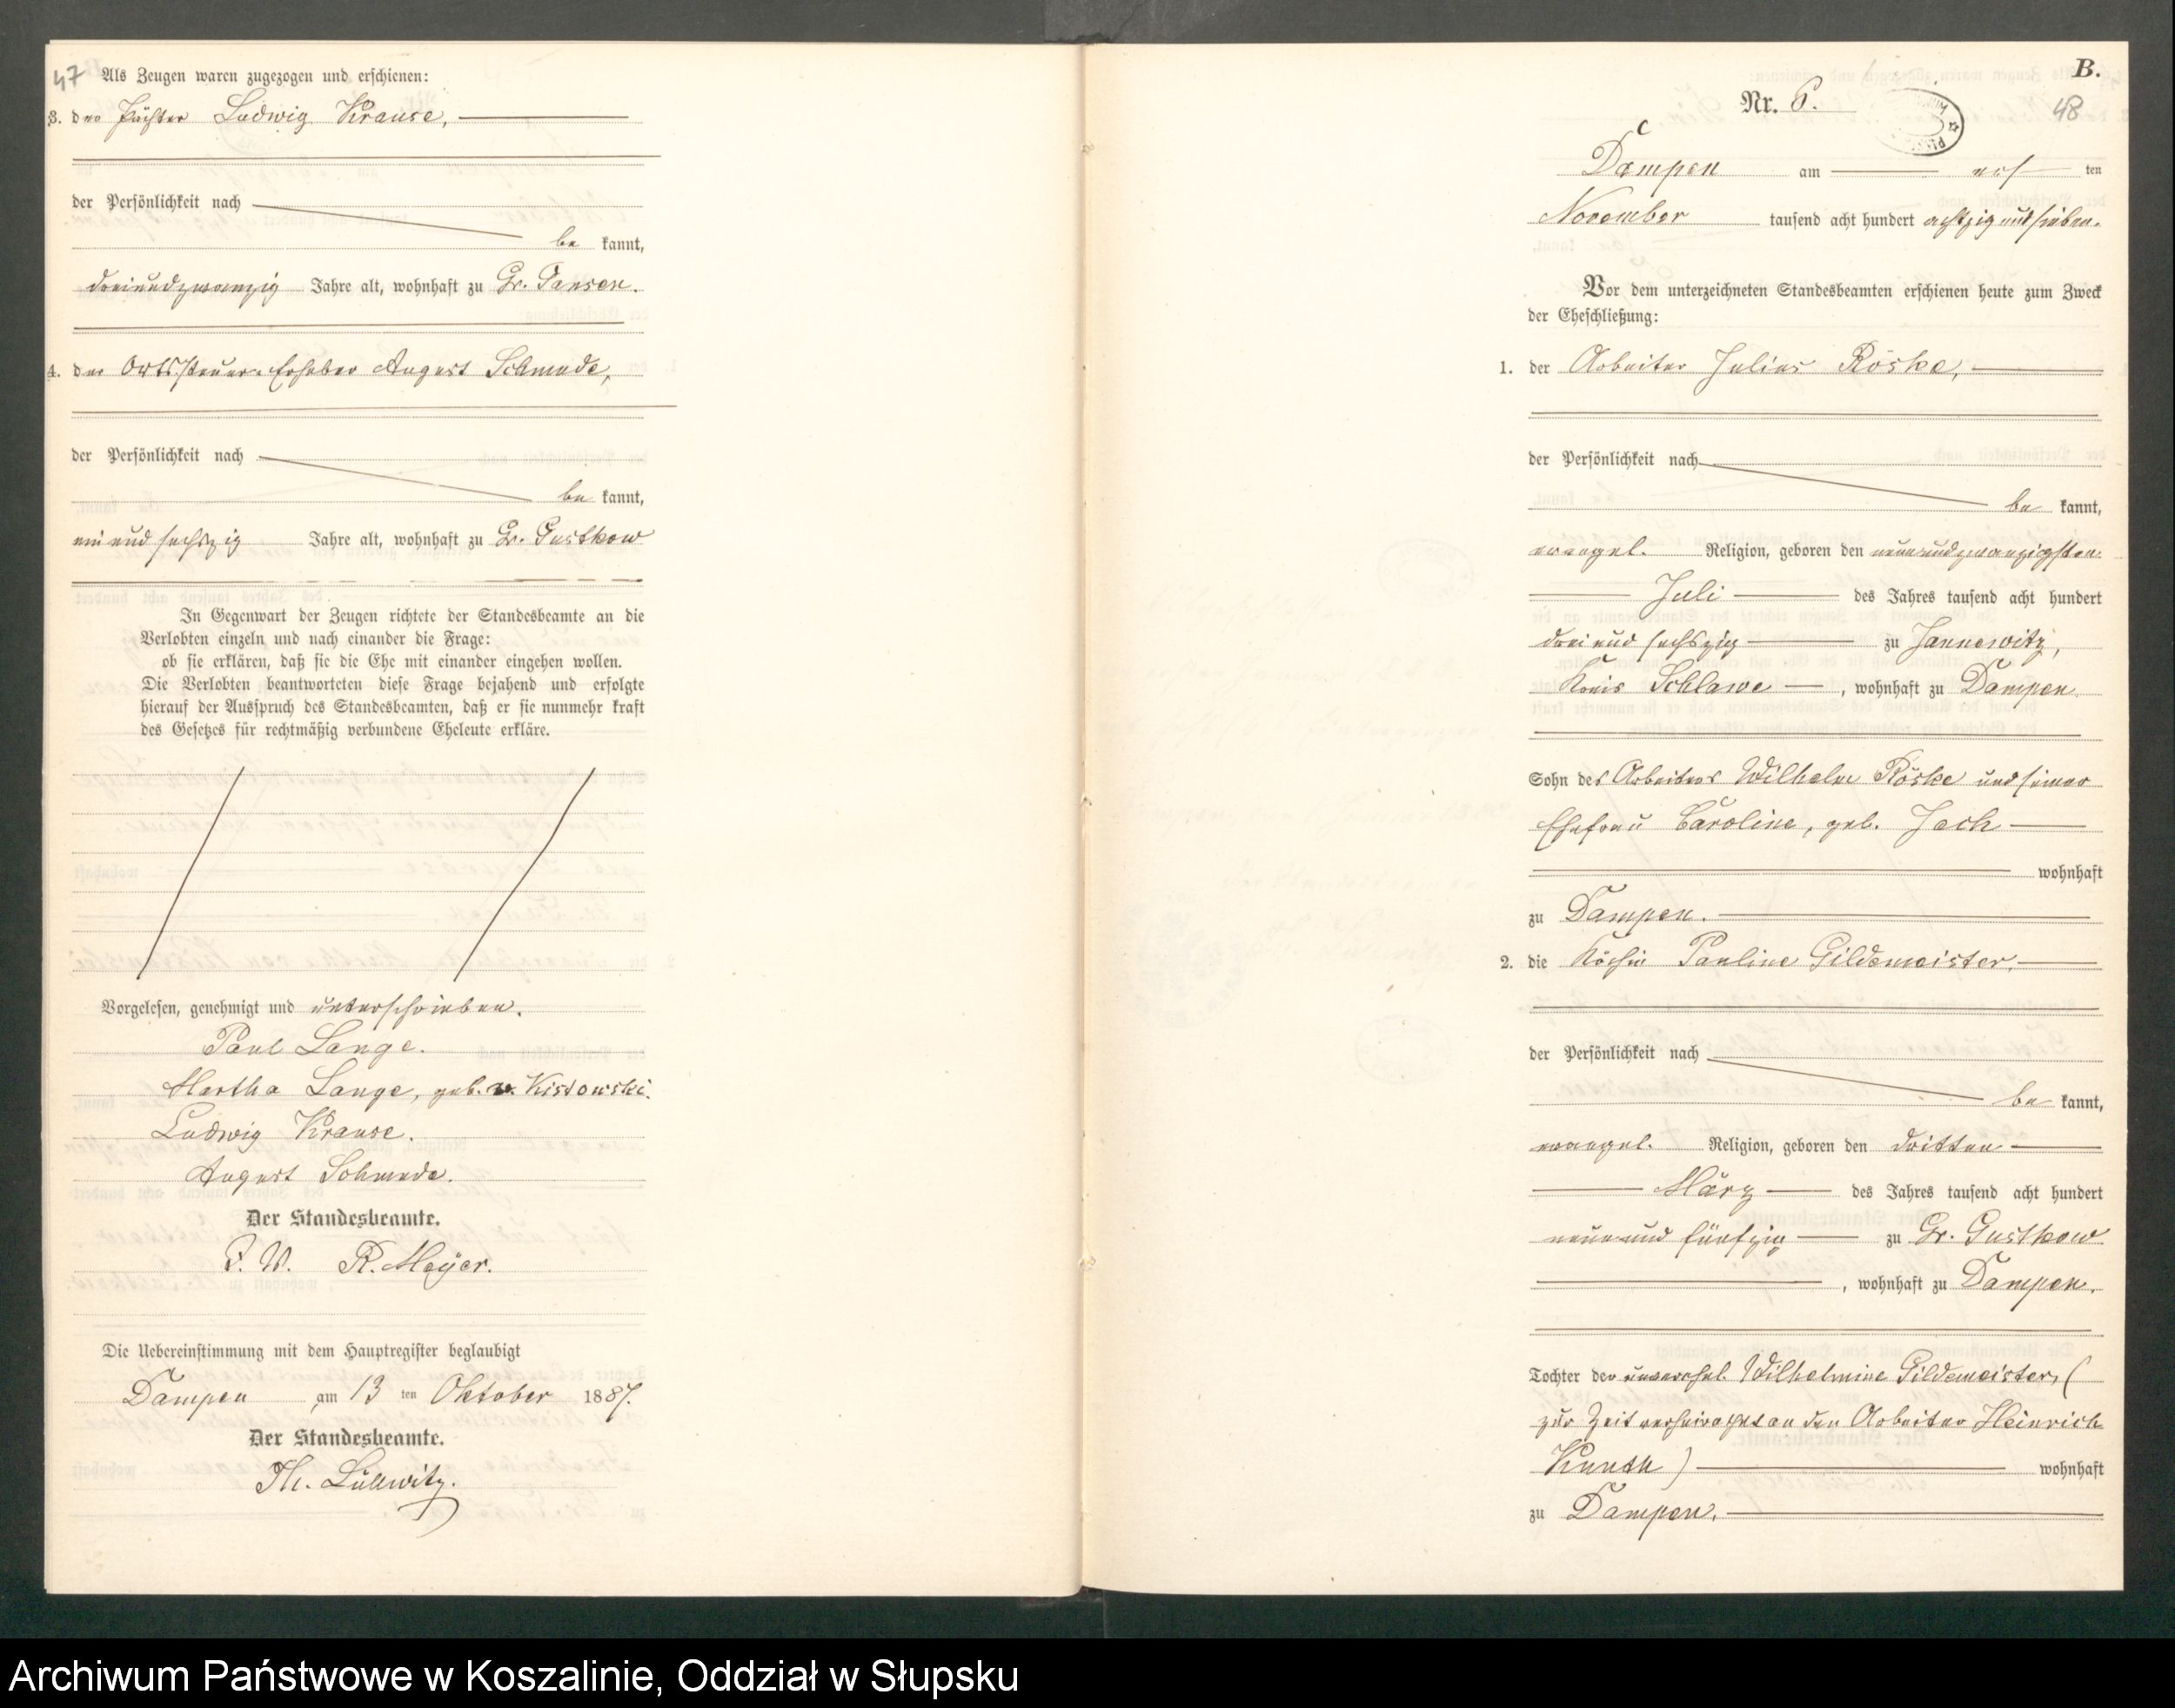 47
Als Zeugen waren zugezogen und erschienen:
3. der Pächter Ludwig Krause,
der Persönlichkeit nach
be kannt,
dreiundzwanzig Jahre alt, wohnhaft zu Gr. Jansen.
4. der Ortssteuer-Erheber August Schmude,
der Persönlichkeit nach
be kannt,
ein und sechszig Jahre alt, wohnhaft zu Gr. Gustkow
In Gegenwart der Zeugen richtete der Standesbeamte an die
Verlobten einzeln und nach einander die Frage:
ob sie erklären, daß sie die Ehe mit einander eingehen wollen.
Die Verlobten beantworteten diese Frage bejahend und erfolgte
hierauf der Ausspruch des Standesbeamten, daß er sie nunmehr kraft
des Gesetzes für rechtmäßig verbundene Eheleute erkläre.
Vorgelesen, genehmigt und unterschrieben.
Paul Lange.
Martha Lange, geb. v. Kistowski.
Ludwig Krause.
August Schmude.
Der Standesbeamte.
R. Meyer.
Die Uebereinstimmung mit dem Hauptregister beglaubigt
Dampen am 13 ten Oktober 1887.
Der Standesbeamte.
Th. Lüllwitz.
B.
Nr. 6.
48
Dampen am ers ten
November tausend acht hundert achtzig und sieben.
Vor dem unterzeichneten Standesbeamten erschienen heute zum Zweck
der Eheschließung:
1. der Arbeiter Julius Röske,
der Persönlichkeit nach
be kannt,
evangel. Religion, geboren den neunundzwanzigsten
Juli des Jahres tausend acht hundert
drei und sechszig zu Jannewitz,
Kreis Schlawe, wohnhaft zu Dampen
Sohn des Arbeiters Wilhelm Röske und seiner
Ehefrau Caroline, geb. Jech
wohnhaft
zu Dampen.
2. die Köchin Pauline Gildemeister,
der Persönlichkeit nach
be kannt,
evangel. Religion, geboren den dritten
März des Jahres tausend acht hundert
neun und fünfzig zu Gr. Gustkow
, wohnhaft zu Dampen.
Tochter der unverehel. Wilhelmine Gildemeister, (
zur Zeit verheirathet an den Arbeiter Heinrich
Kunth) wohnhaft
zu Dampen.
Archiwum Państwowe w Koszalinie, Oddział w Słupsku